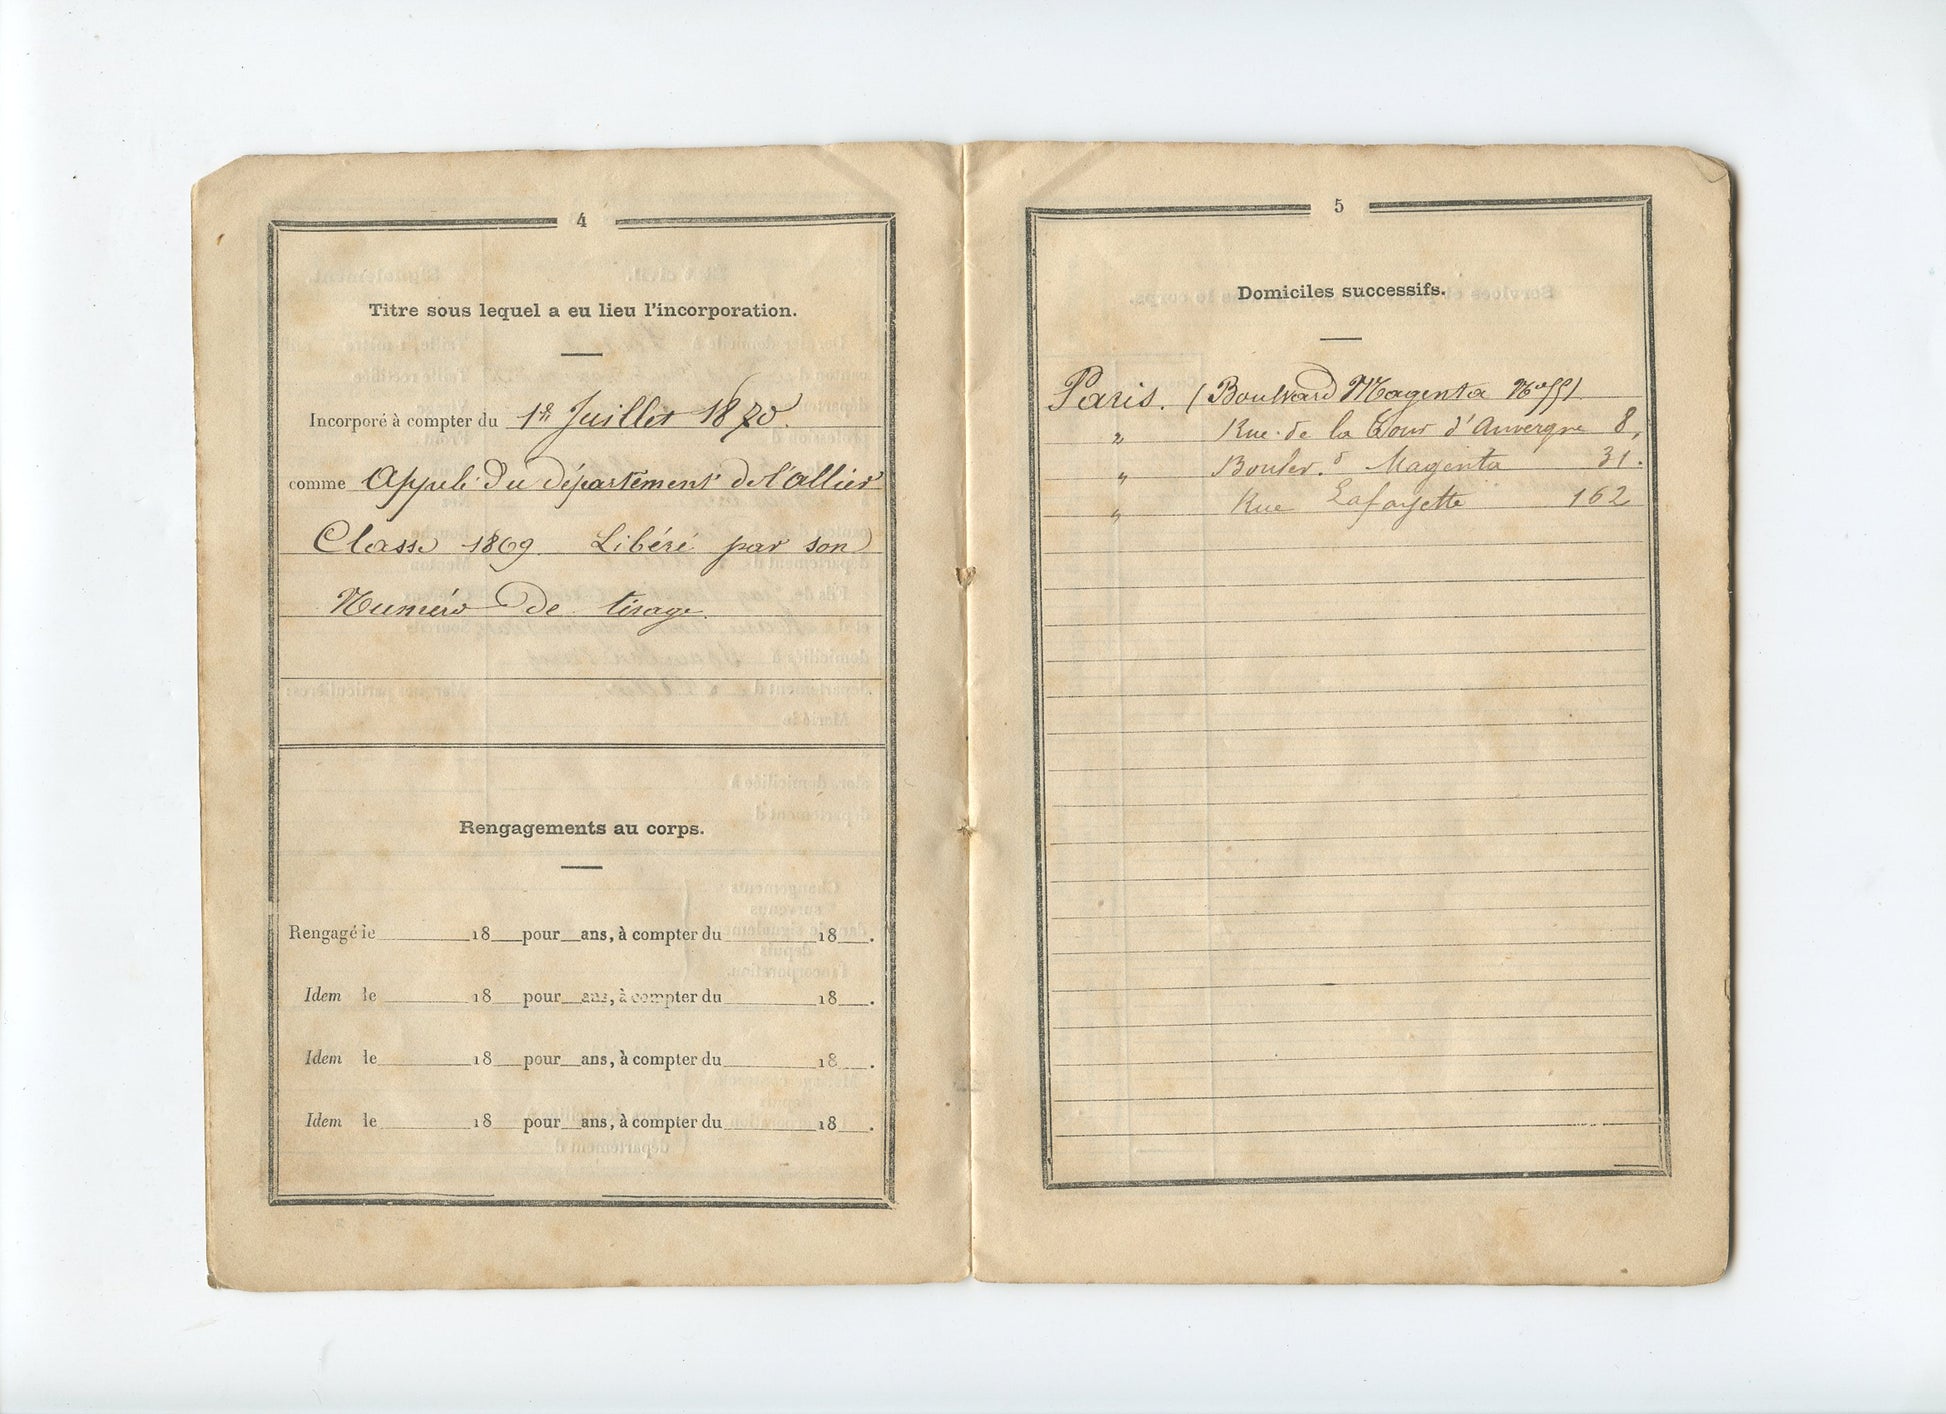 4
Titre sous lequel a eu lieu l'incorporation.
Incorporé à compter du 1er Juillet 1870.
comme Appelé du département de l'Allier
Classe 1869 Libéré par son
Numéro de tirage
Rengagements au corps.
Rengagé le 18 pour ans, à compter du 18 .
Idem le 18 pour ans, à compter du 18 .
Idem le 18 pour ans, à compter du 18 .
Idem le 18 pour ans, à compter du 18 .
5
Domiciles successifs.
Paris. (Boulvard Magenta
" Rue de la Tour d'Auvergne 8,
" Boulev.d Magenta 31.
" Rue Lafayette 162